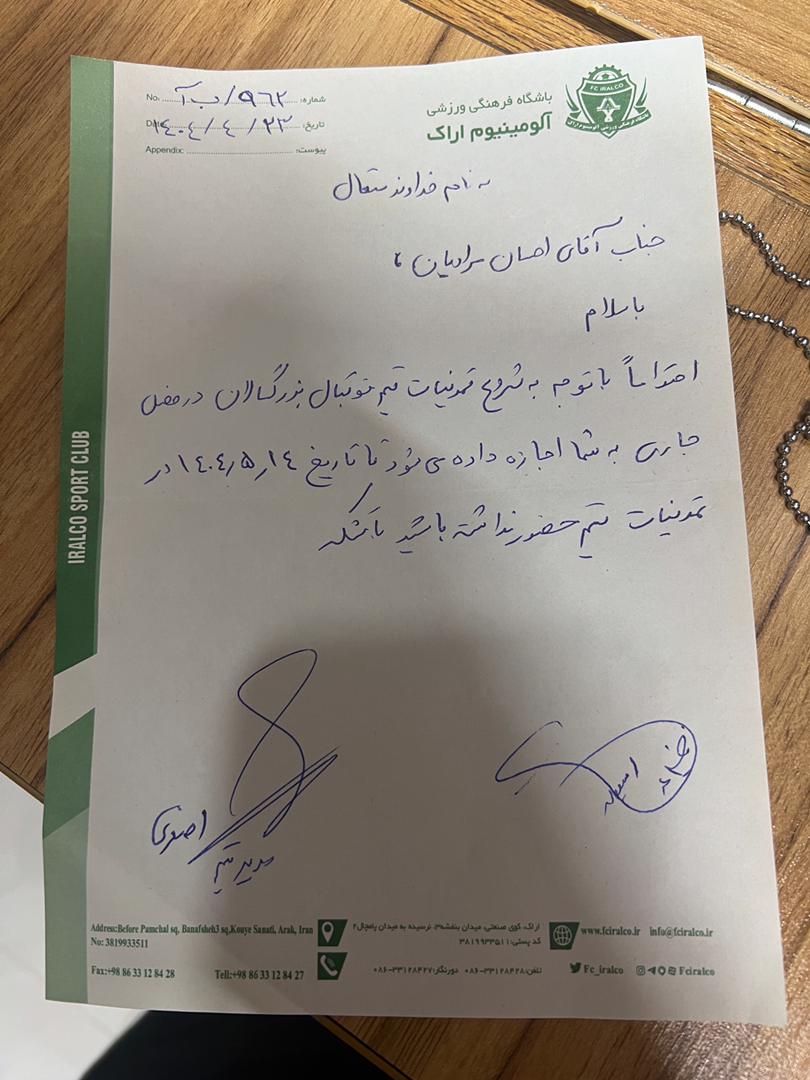 FC IRALCO
باشگاه فرهنگی ورزشی آلومینیوم اراک
باشگاه فرهنگی ورزشی
آلومینیوم اراک
شماره: ۹۶۲/ب آ No.
تاریخ: ۱۴۰۴/۴/۲۳
پیوست: Appendix:
به نام خداوند متعال
جناب آقای احسان
با سلام
احتراماً با توجه به شروع تمرینات تیم فوتبال بزرگسالان در فصل
جاری به شما اجازه داده می شود تا تاریخ ۱۴۰۴٫۵٫۱۴ در
تمرینات تیم حضور نداشته باشید باتشکر
مدیر تیم
IRALCO SPORT CLUB
Address:Before Pamchal sq, Banafsheh3 sq,Kouye Sanati, Arak, Iran
No: 3819933511
Fax:+98 86 33 12 84 28 Tell:+98 86 33 12 84 27
اراک، کوی صنعتی، میدان بنفشه۳، نرسیده به میدان پامچال۲
کد پستی: ۳۸۱۹۹۳۳۵۱۱
تلفن: ۰۸۶-۳۳۱۲۸۴۲۸ دورنگار: ۰۸۶-۳۳۱۲۸۴۲۷
www.fciralco.ir info@fciralco.ir
Fc_iralco Fciralco